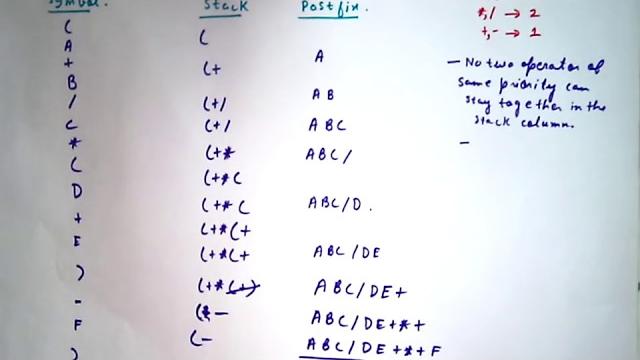 Symbol. Stack Postfix.
( (
A A
+ (+
B AB
/ (+/
C (+/ ABC
* (+* ABC/
( (+*(
D (+*( ABC/D.
+ (+*(+
E (+*(+ ABC/DE
) (+*(+) ABC/DE+
- (*- ABC/DE+*+
F (- ABC/DE+*+F
)
*,/ → 2
+,- → 1
- No two operator of
same priority can
stay together in the
stack column.
-